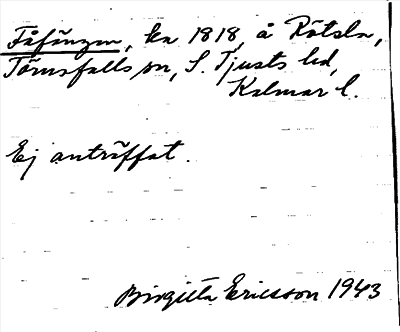 Fåfängan, ka 1818, å Rötsla,
Törnsfalls sn, S. Tjusts hd,
Kalmar l.
Ej anträffat.
Birgitta Ericsson 1943